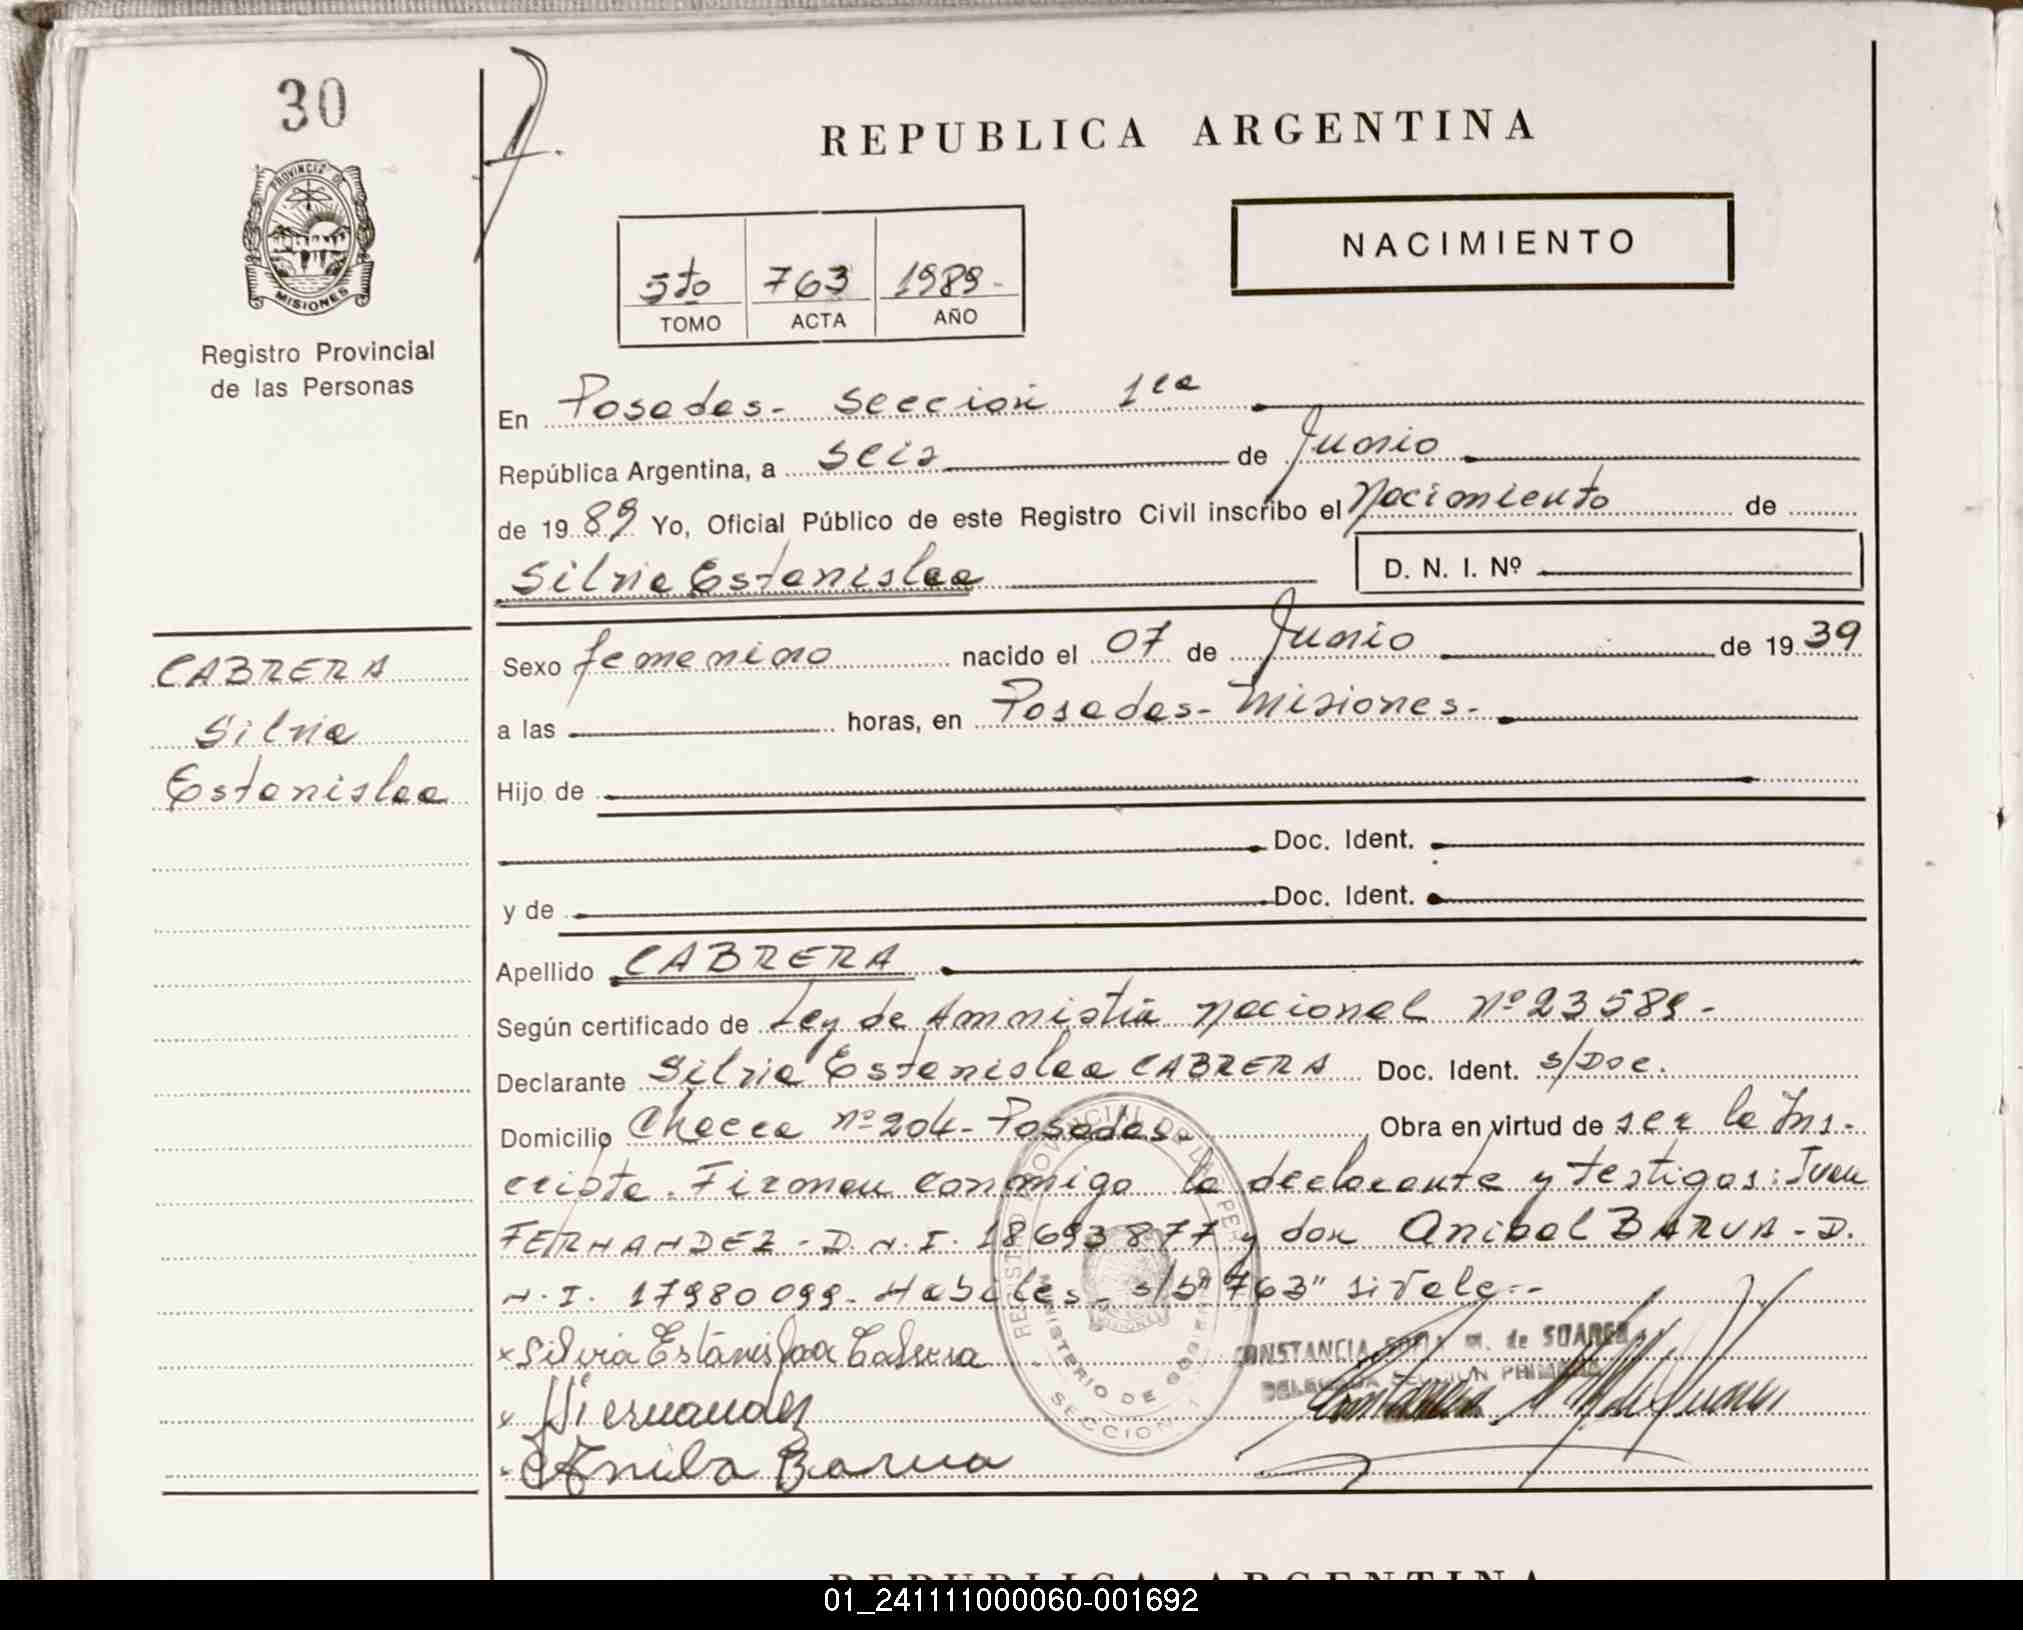 30
PROVINCIA DE
MISIONES
Registro Provincial
de las Personas
CABRERA
Silvia
Estanislaa
REPUBLICA ARGENTINA
NACIMIENTO
5to 763 1989-
TOMO ACTA AÑO
En Posadas- Sección 1ra
República Argentina, a seis de Junio
de 1989 Yo, Oficial Público de este Registro Civil inscribo el Nacimiento de
Silvia Estanislaa D. N. I. Nº
Sexo femenino nacido el 07 de Junio de 1939
a las horas, en Posadas- Misiones-
Hijo de
Doc. Ident.
y de Doc. Ident.
Apellido CABRERA
Según certificado de Ley de Amnistía Nacional Nº 23589-
Declarante Silvia Estanislaa CABRERA Doc. Ident. s/Doc.
Domicilio Chacra nº 204- Posadas- Obra en virtud de ser la Ins-
cripta. Firman conmigo la declarante y testigos: Juan
FERNANDEZ- D.N.I. 18693877 y don Anibal BARUA- D.
N.I. 17980099- Habiles- s/b "763" si Vale--
x Silvia Estanislaa Cabrera
x Fernandez
Anibal Barua
REGISTRO PROVINCIAL DE LAS PER
MINISTERIO DE GOBIERNO
SECCION 1
CONSTANCIA SOFIA M. de SUAREZ
DELEGADA SECCION PRIMERA
REPUBLICA ARGENTINA
01_241111000060-001692